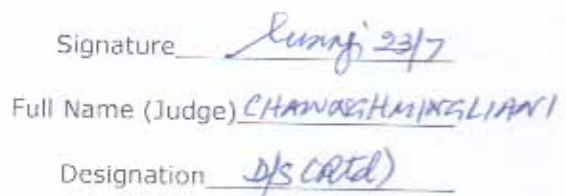 Signature 23/7
Full Name (Judge) CHAWNGHMINGLIANI
Designation D/S (Retd)